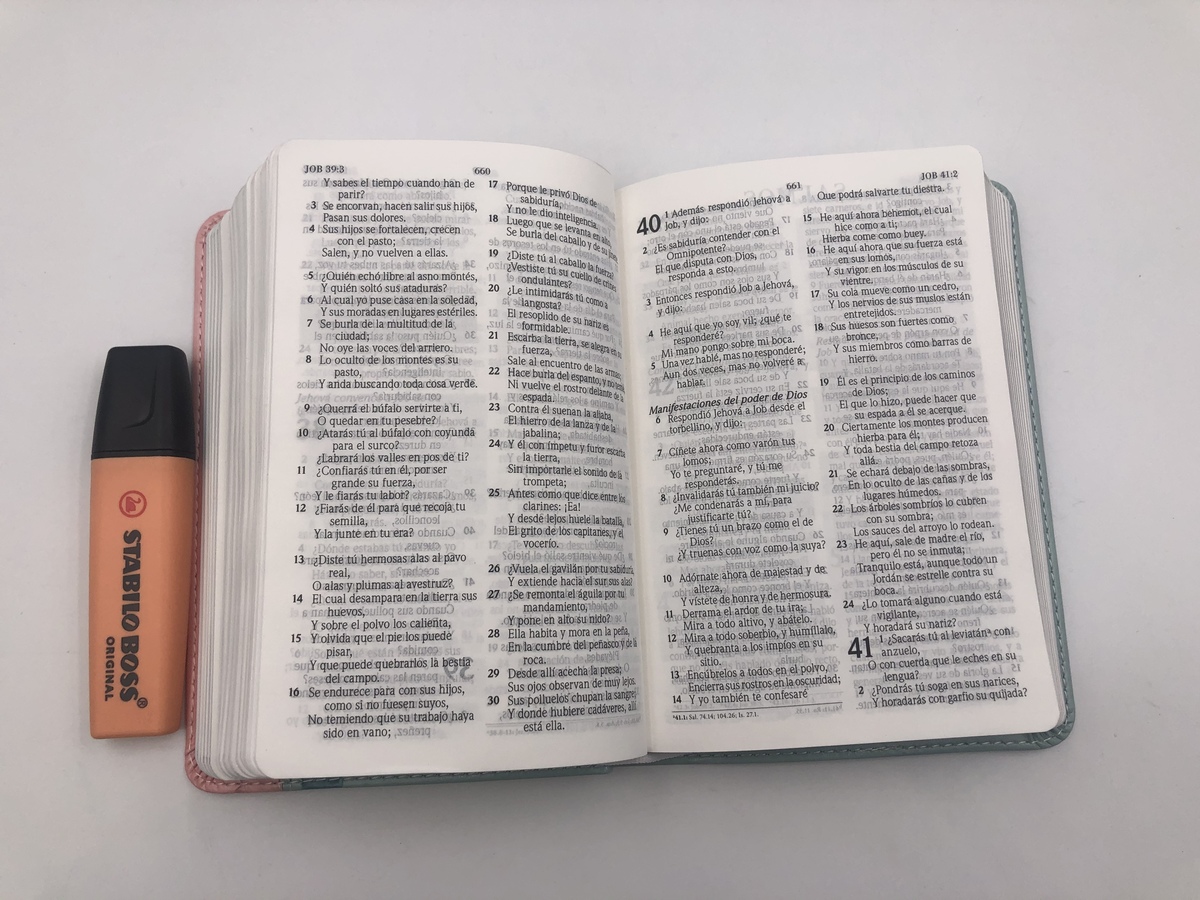 JOB 39:3
660
Y sabes el tiempo cuando han de
parir?
3 Se encorvan, hacen salir sus hijos,
Pasan sus dolores.
4 Sus hijos se fortalecen, crecen
con el pasto;
Salen, y no vuelven a ellas.
5 ¿Quién echó libre al asno montés,
Y quién soltó sus ataduras?
6 Al cual yo puse casa en la soledad,
Y sus moradas en lugares estériles.
7 Se burla de la multitud de la
ciudad;
No oye las voces del arriero.
8 Lo oculto de los montes es su
pasto,
Y anda buscando toda cosa verde.
9 ¿Querrá el búfalo servirte a ti,
O quedar en tu pesebre?
10 ¿Atarás tú al búfalo con coyunda
para el surco?
¿Labrará los valles en pos de ti?
11 ¿Confiarás tú en él, por ser
grande su fuerza,
Y le fiarás tu labor?
12 ¿Fiarás de él para que recoja tu
semilla,
Y la junte en tu era?
13 ¿Diste tú hermosas alas al pavo
real,
O alas y plumas al avestruz?
14 El cual desampara en la tierra sus
huevos,
Y sobre el polvo los calienta,
15 Y olvida que el pie los puede
pisar,
Y que puede quebrarlos la bestia
del campo.
16 Se endurece para con sus hijos,
como si no fuesen suyos,
No temiendo que su trabajo haya
sido en vano;
17 Porque le privó Dios de
sabiduría,
Y no le dio inteligencia.
18 Luego que se levanta en alto,
Se burla del caballo y de su
19 ¿Diste tú al caballo la fuerza?
¿Vestiste tú su cuello de crines
ondulantes?
20 ¿Le intimidarás tú como a
langosta?
El resoplido de su nariz es
formidable.
21 Escarba la tierra, se alegra en su
fuerza,
Sale al encuentro de las armas;
22 Hace burla del espanto, y no teme,
Ni vuelve el rostro delante de la
espada.
23 Contra él suenan la aljaba,
El hierro de la lanza y de la
jabalina;
24 Y él con ímpetu y furor escarba
la tierra,
Sin importarle el sonido de la
trompeta;
25 Antes como que dice entre los
clarines: ¡Ea!
Y desde lejos huele la batalla,
El grito de los capitanes, y el
vocerío.
26 ¿Vuela el gavilán por tu sabiduría,
Y extiende hacia el sur sus alas?
27 ¿Se remonta el águila por tu
mandamiento,
Y pone en alto su nido?
28 Ella habita y mora en la peña,
En la cumbre del peñasco y de la
roca.
29 Desde allí acecha la presa;
Sus ojos observan de muy lejos.
30 Sus polluelos chupan la sangre;
Y donde hubiere cadáveres, allí
está ella.
661
JOB 41:2
40 1 Además respondió Jehová a
Job, y dijo:
2 ¿Es sabiduría contender con el
Omnipotente?
El que disputa con Dios,
responda a esto.
3 Entonces respondió Job a Jehová,
y dijo:
4 He aquí que yo soy vil; ¿qué te
responderé?
Mi mano pongo sobre mi boca.
5 Una vez hablé, mas no responderé;
Aun dos veces, mas no volveré a
hablar.
Manifestaciones del poder de Dios
6 Respondió Jehová a Job desde el
torbellino, y dijo:
7 Cíñete ahora como varón tus
lomos;
Yo te preguntaré, y tú me
responderás.
8 ¿Invalidarás tú también mi juicio?
¿Me condenarás a mí, para
justificarte tú?
9 ¿Tienes tú un brazo como el de
Dios?
¿Y truenas con voz como la suya?
10 Adórnate ahora de majestad y de
alteza,
Y vístete de honra y de hermosura.
11 Derrama el ardor de tu ira;
Mira a todo altivo, y abátelo.
12 Mira a todo soberbio, y humíllalo,
Y quebranta a los impíos en su
sitio.
13 Encúbrelos a todos en el polvo,
Encierra sus rostros en la oscuridad;
14 Y yo también te confesaré
Que podrá salvarte tu diestra.
15 He aquí ahora behemot, el cual
hice como a ti;
Hierba come como buey.
16 He aquí ahora que su fuerza está
en sus lomos,
Y su vigor en los músculos de su
vientre.
17 Su cola mueve como un cedro,
Y los nervios de sus muslos están
entretejidos.
18 Sus huesos son fuertes como
bronce,
Y sus miembros como barras de
hierro.
19 Él es el principio de los caminos
de Dios;
El que lo hizo, puede hacer que
su espada a él se acerque.
20 Ciertamente los montes producen
hierba para él;
Y toda bestia del campo retoza
allá.
21 Se echará debajo de las sombras,
En lo oculto de las cañas y de los
lugares húmedos.
22 Los árboles sombríos lo cubren
con su sombra;
Los sauces del arroyo lo rodean.
23 He aquí, sale de madre el río,
pero él no se inmuta;
Tranquilo está, aunque todo un
Jordán se estrelle contra su
boca.
24 ¿Lo tomará alguno cuando está
vigilante,
Y horadará su nariz?
41 1 ¿Sacarás tú al leviatánᵃ con
anzuelo,
O con cuerda que le eches en su
lengua?
2 ¿Pondrás tú soga en sus narices,
Y horadarás con garfio su quijada?
ᵃ41.1: Sal. 74.14; 104.26; Is. 27.1.
STABILO BOSS®
ORIGINAL